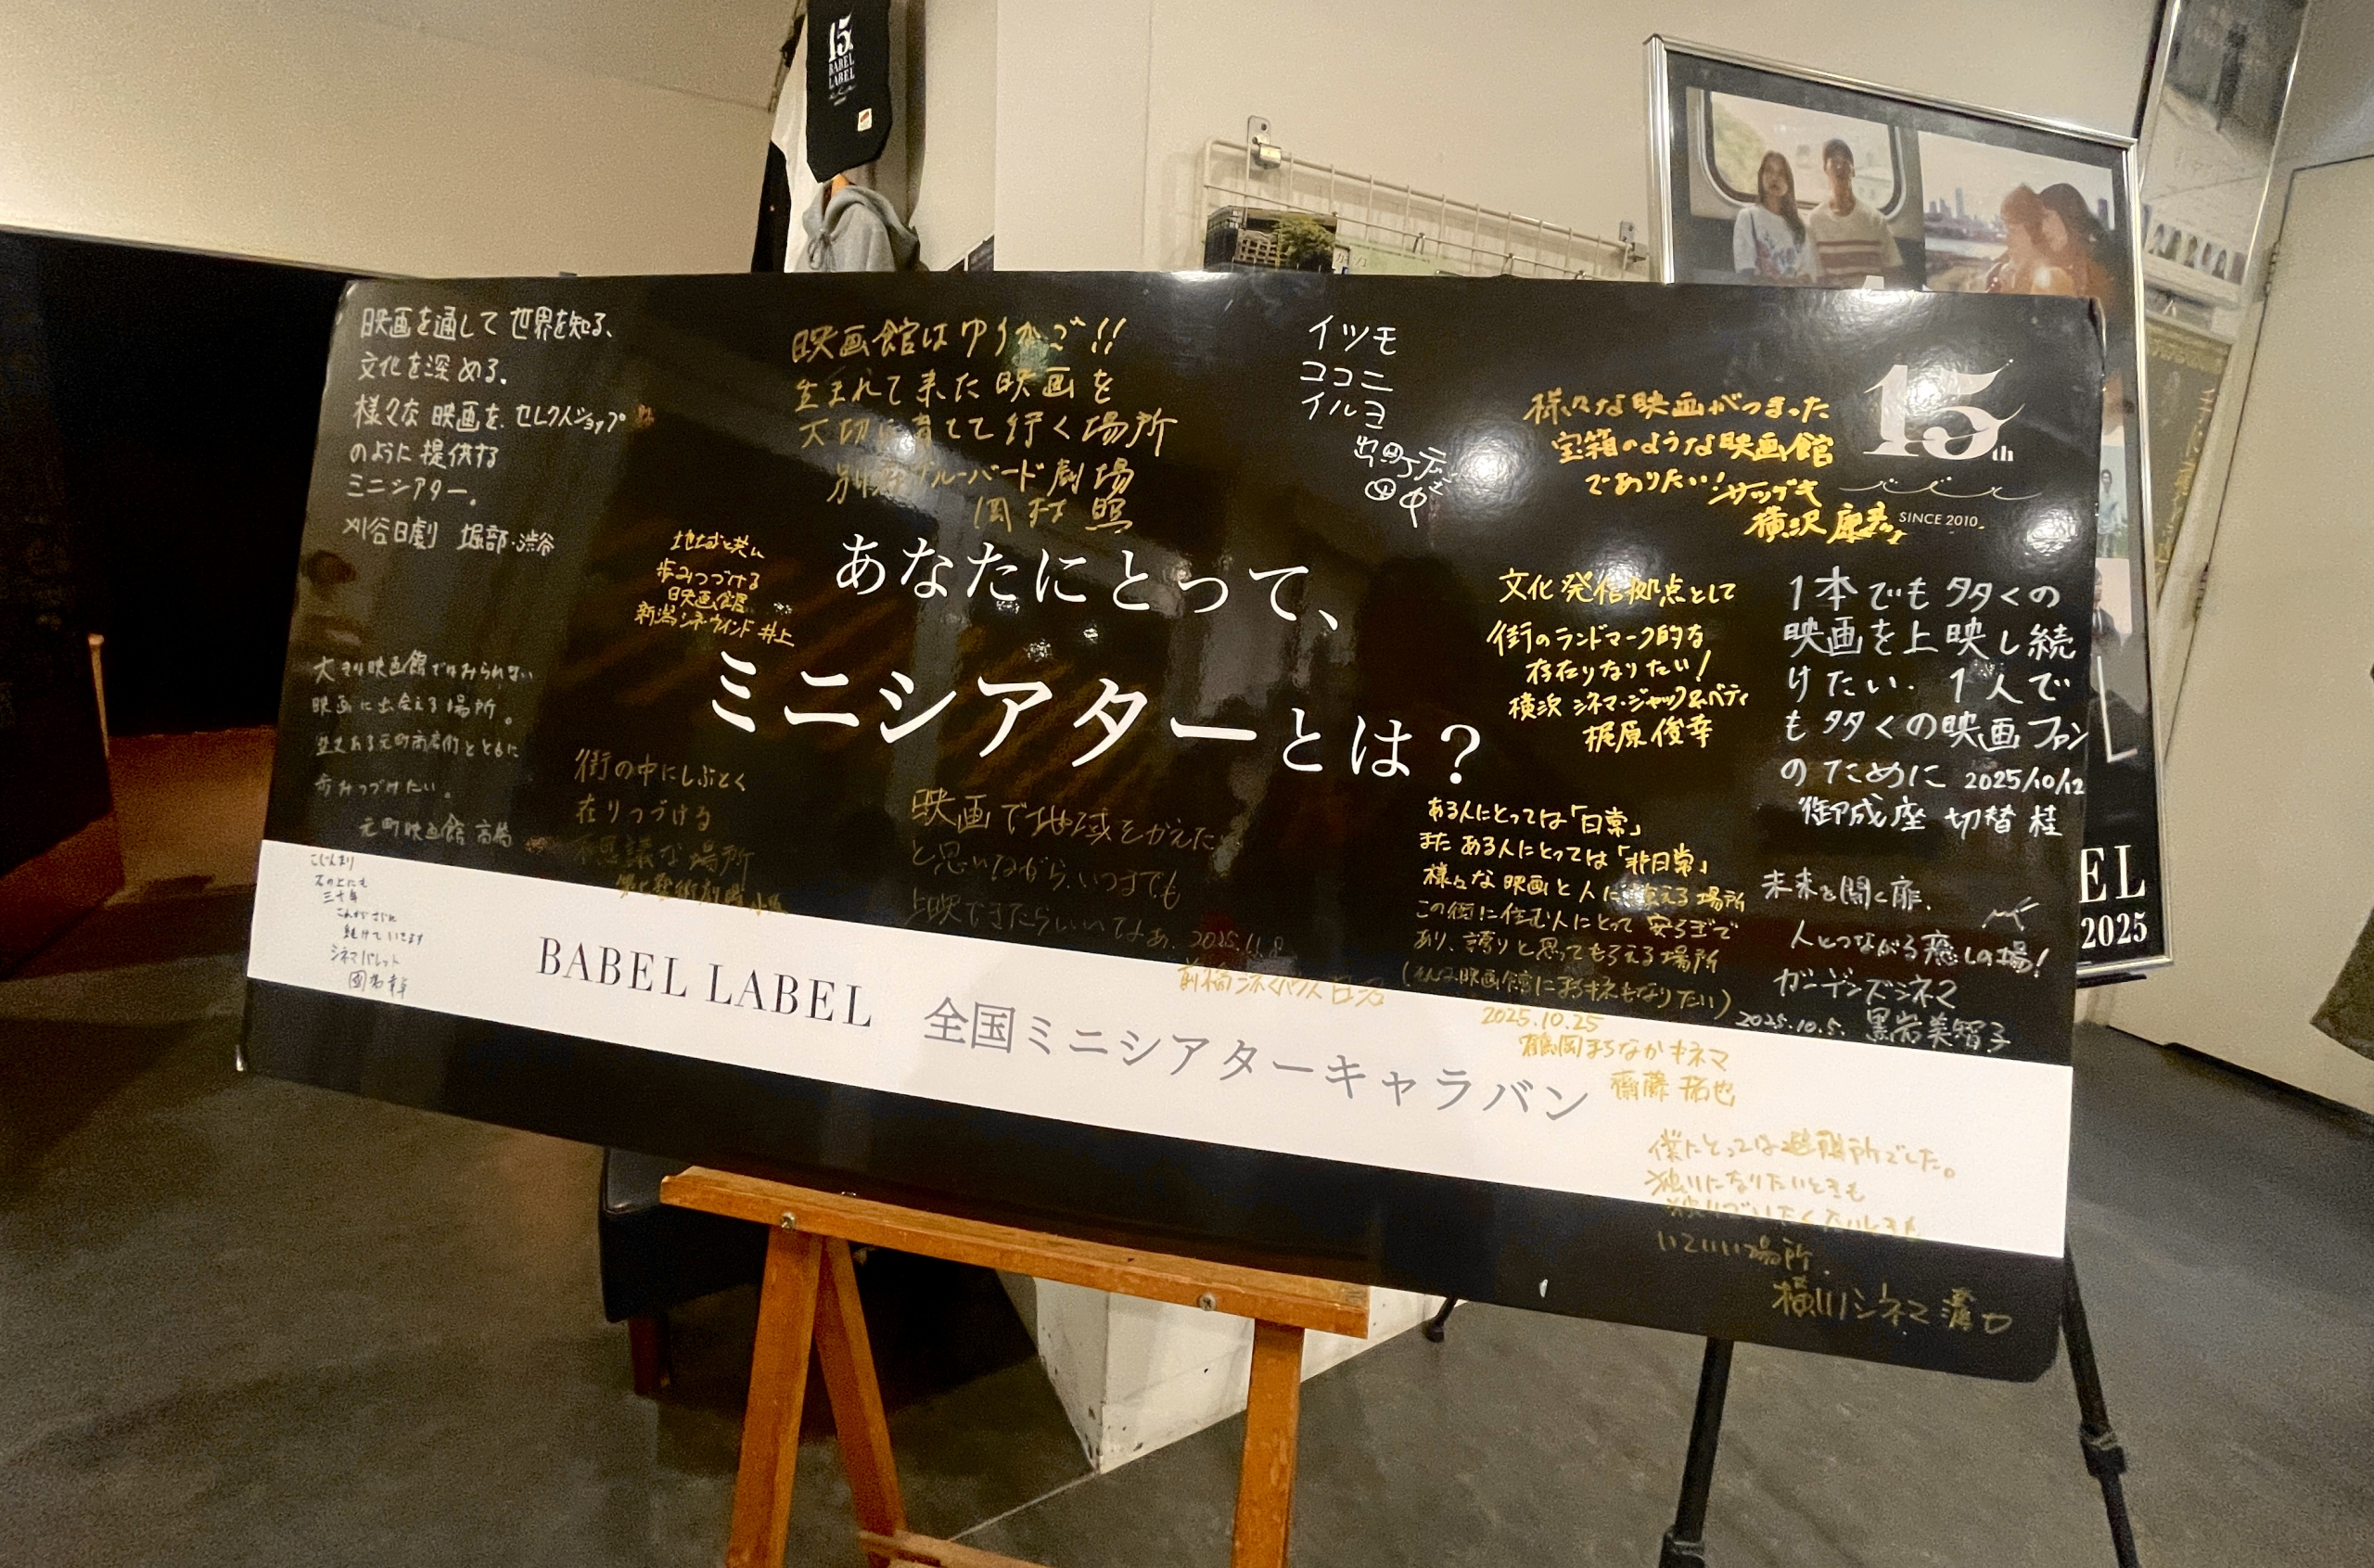 15th
BABEL
LABEL
映画を通して世界を知る、
文化を深める。
様々な映画を、セレクトショップ
のように提供する
ミニシアター。
刈谷日劇 堀部・渋谷
映画館はゆりかご!!
生まれて来た映画を
大切に育てて行く場所
別府ブルーバード劇場
岡村 照
イツモ
ココニ
イルヨ
出町座
田中
様々な映画がつまった
宝箱のような映画館
でありたい!
横沢
15th
SINCE 2010
地域と共に
歩みつづける
映画館
新潟シネ・ウインド 井上
あなたにとって、
ミニシアターとは?
文化発信拠点として
街のランドマーク的な
存在になりたい!
横浜シネマ・ジャック&ベティ
梶原俊幸
1本でも多くの
映画を上映し続
けたい。1人で
も多くの映画ファン
のために 2025/10/12
御成座 切替 桂
大きな映画館ではみられない
映画に出会える場所。
歴史ある元町商店街とともに
歩みつづけたい。
元町映画館 高橋
街の中にしぶとく
在りつづける
不思議な場所
第七藝術劇場 小坂
映画で地域をかえたい
と思いながら、いつまでも
上映できたらいいなぁ。2025.11.8
前橋シネマハウス 日沼
ある人にとっては「日常」
また ある人にとっては「非日常」
様々な映画と人に出会える場所
この街に住む人にとって 安らぎで
あり、誇りと思ってもらえる場所
(そんな映画館にまちキネもなりたい)
2025.10.25
鶴岡まちなかキネマ
齋藤 拓也
未来を開く扉、
人とつながる癒しの場!
ガーデンズシネマ
2025.10.5. 黒岩美智子
こじんまり
石の上にも
三十年
これからも
続けていきます
シネマパレット
BABEL LABEL 全国ミニシアターキャラバン
僕にとっては避難所でした。
独りになりたいときも
独りでいたくないときも
いていい場所。
横川シネマ 溝口
EL
2025